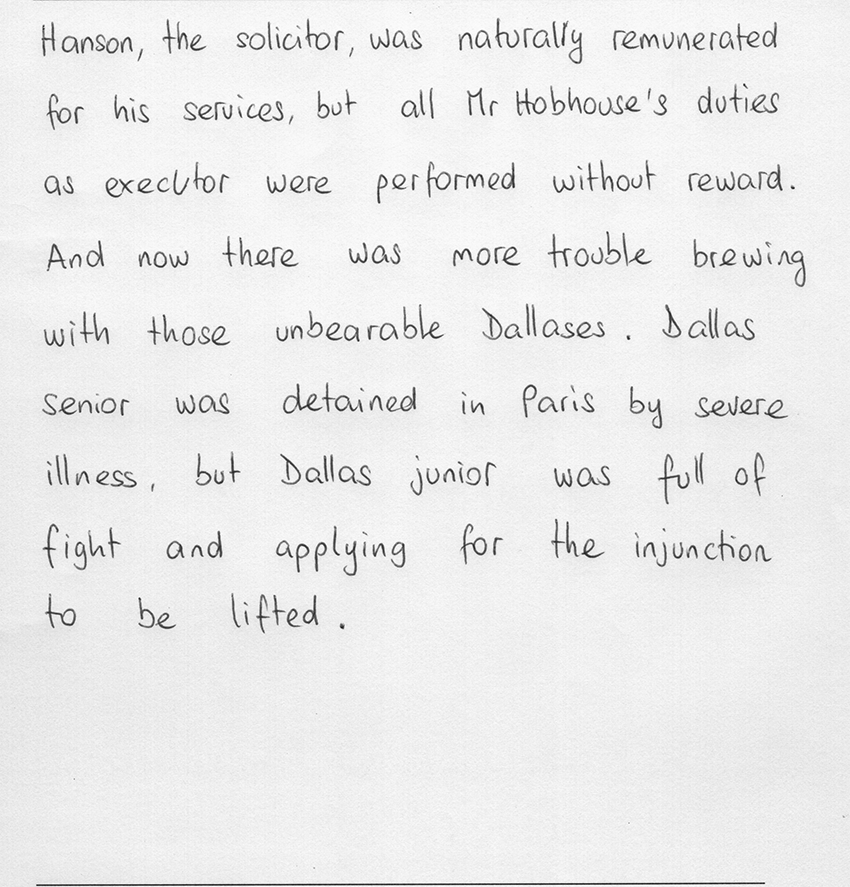 Hanson, the solicitor, was naturally remunerated
for his services, but all Mr Hobhouse's duties
as executor were performed without reward.
And now there was more trouble brewing
with those unbearable Dallases. Dallas
senior was detained in Paris by severe
illness, but Dallas junior was full of
fight and applying for the injunction
to be lifted.